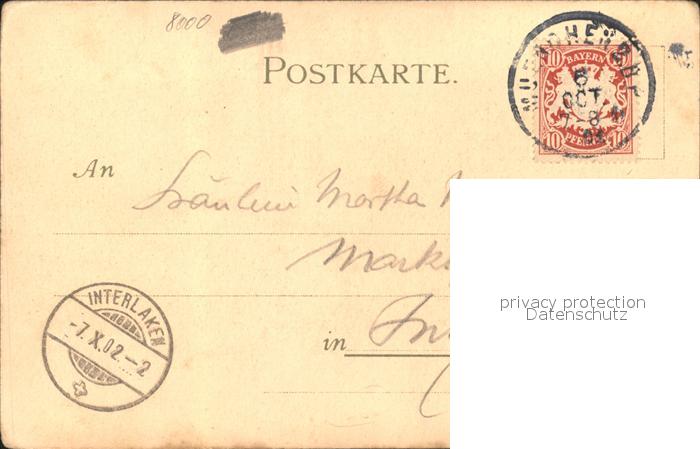 8000
POSTKARTE.
BAYERN
10 10
6
OCT.
7-8
10 PFENNIG 10
An
Fräulein Martha
Mark
in
INTERLAKEN
-7.X.02.-2
privacy protection
Datenschutz